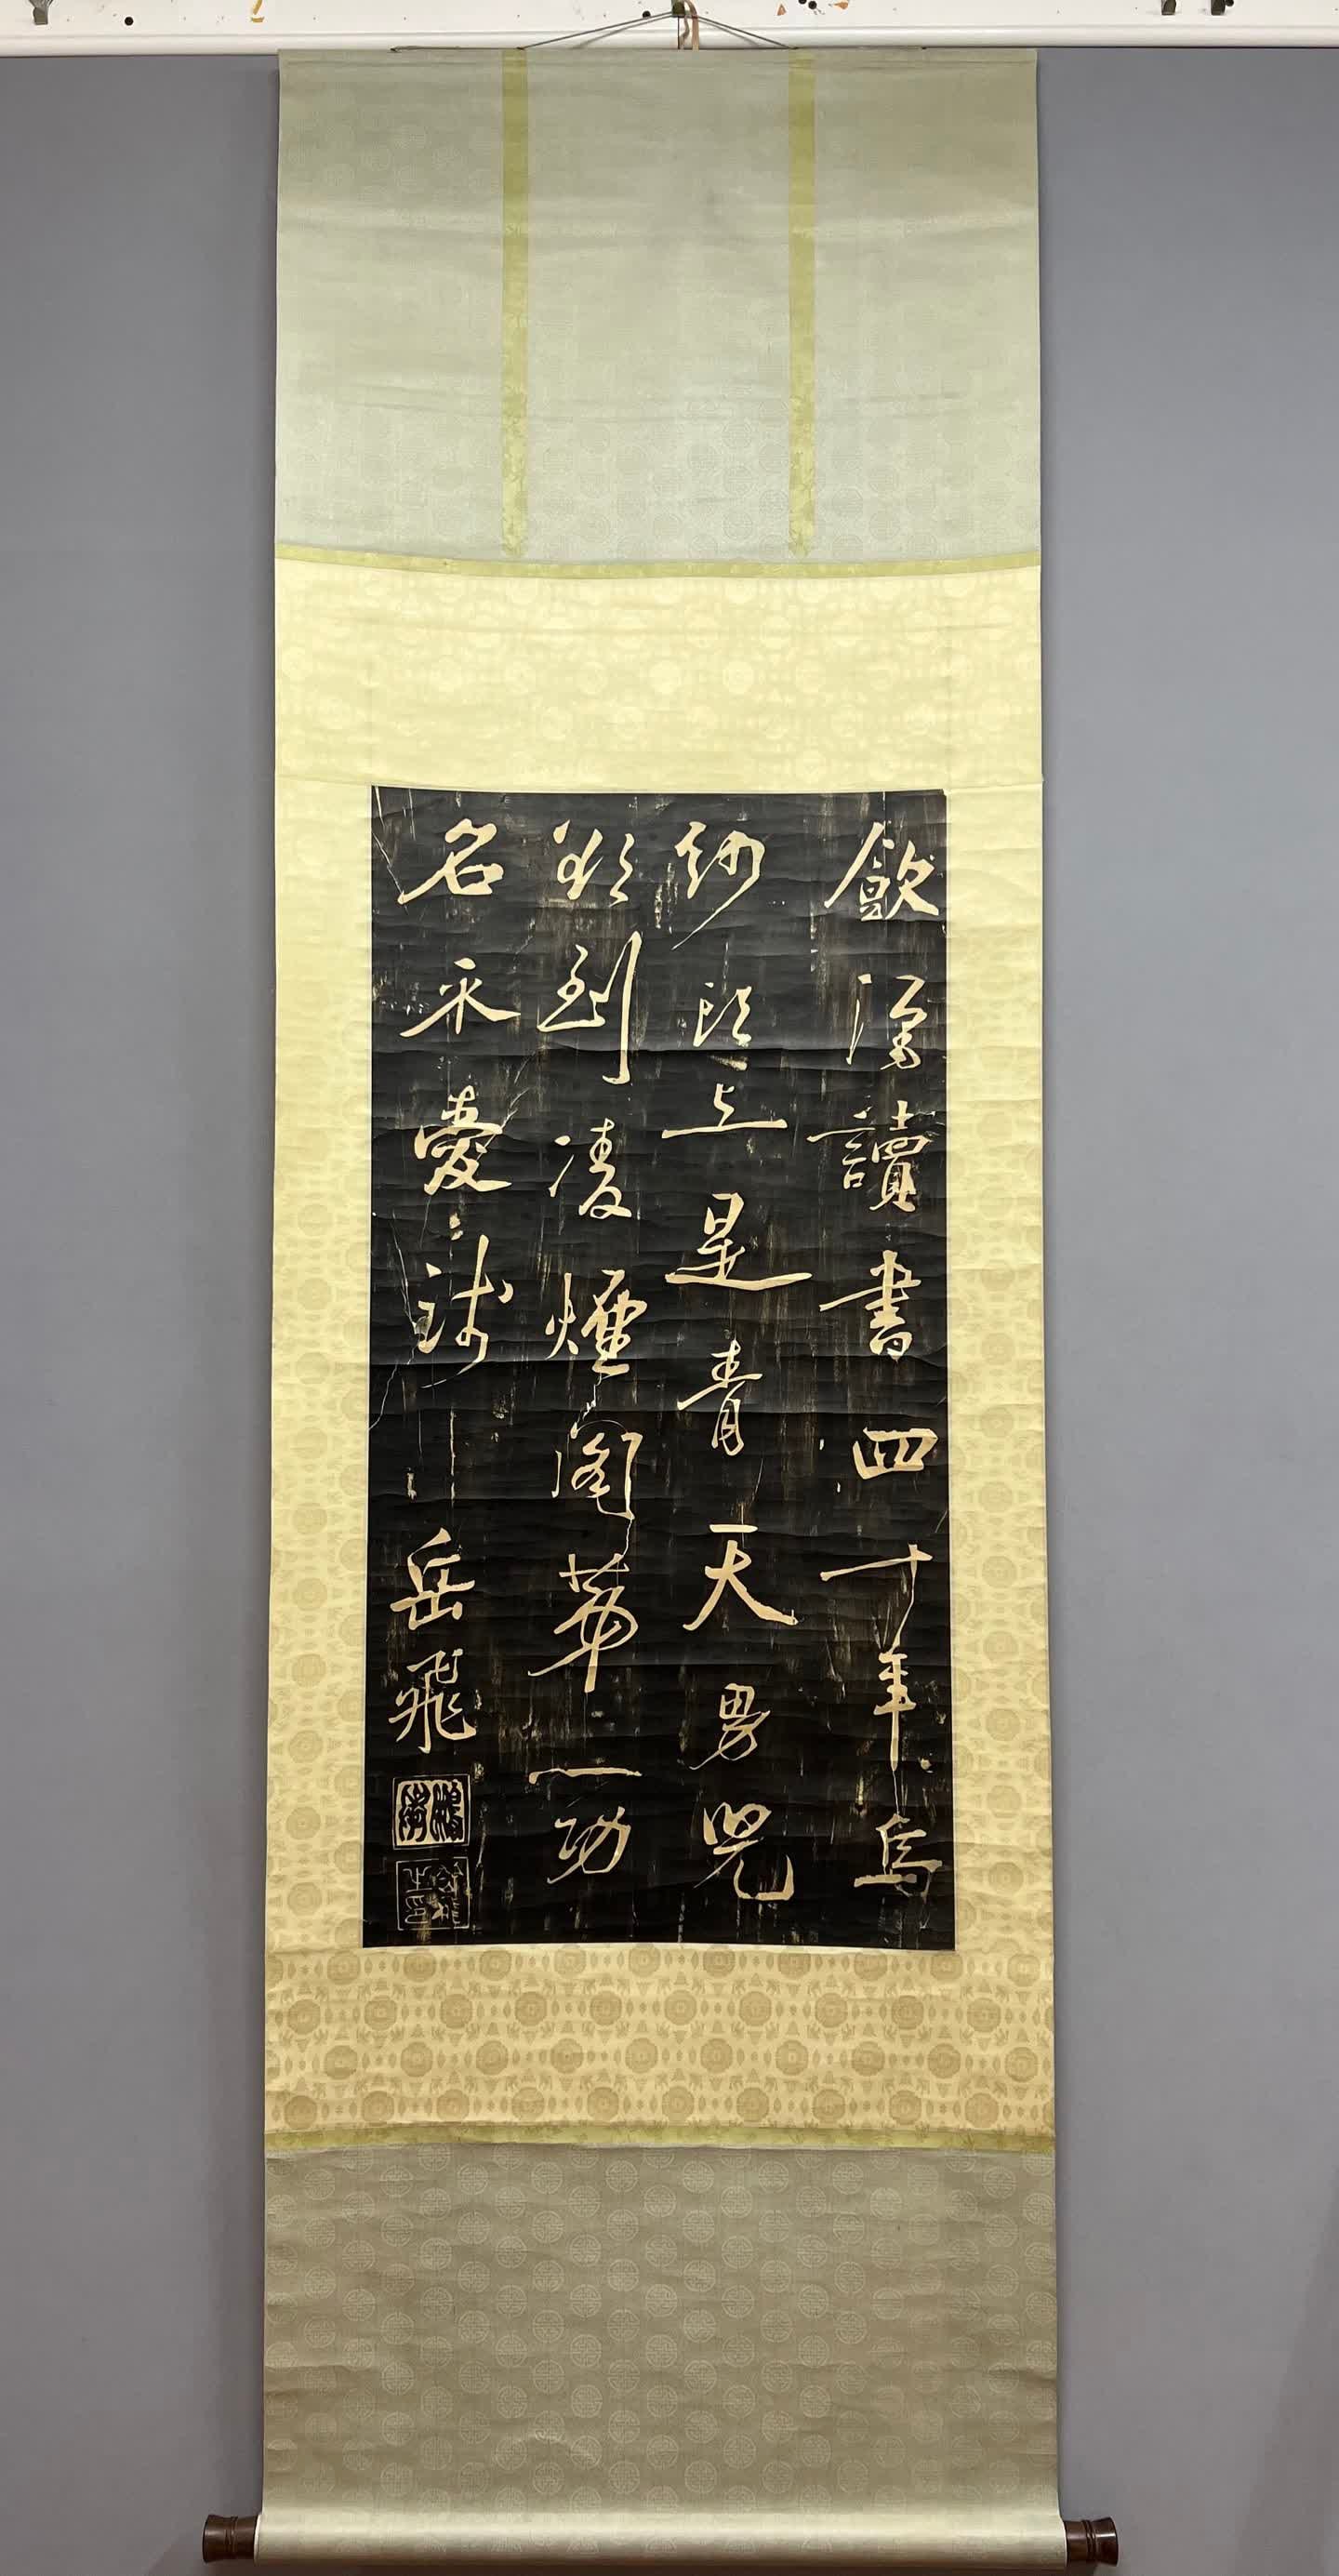 飲酒讀書四十年烏
紗頭上是青天男兒
欲到凌煙閣第一功
名不愛錢 岳飛
鵬舉